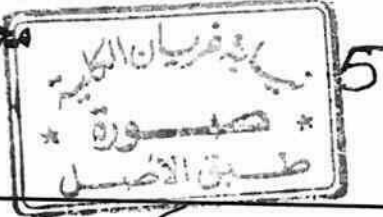 نيابة غريان الكلية
5
* صورة *
طبق الاصل